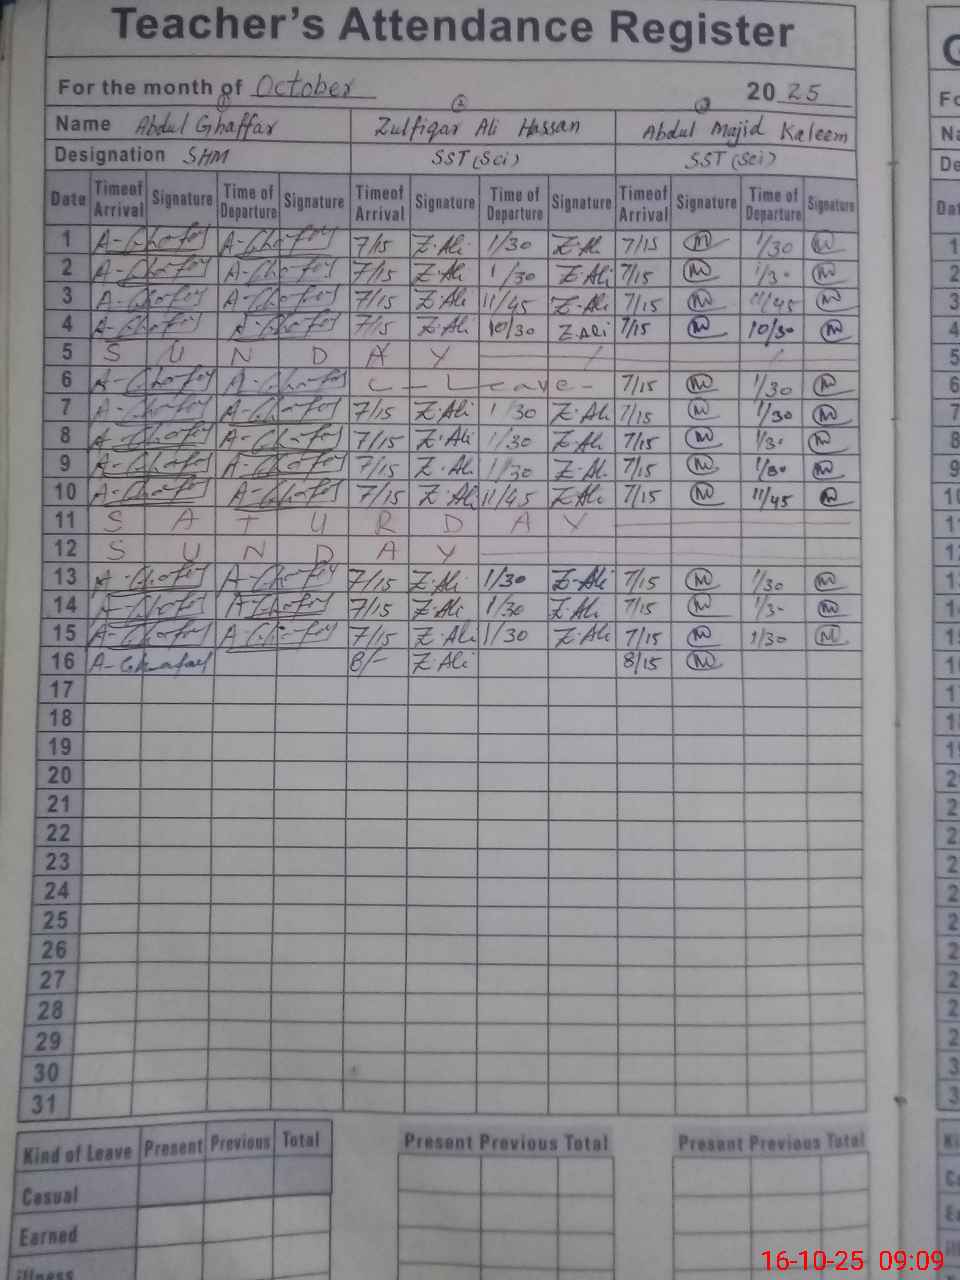 Teacher's Attendance Register
For the month of October 2025
① ② ③
Name Abdul Ghaffar Zulfiqar Ali Hassan Abdul Majid Kaleem
Designation SHM SST (Sci) SST (Sci)
Date Timeof Arrival Signature Time of Departure Signature Timeof Arrival Signature Time of Departure Signature Timeof Arrival Signature Time of Departure Signature
1 A-Ghafoy A-Ghafoy 7/15 Z.Ali 1/30 Z.Ali 7/15 M 1/30 M
2 A-Ghafoy A-Ghafoy 7/15 Z.Ali 1/30 Z.Ali 7/15 M 1/30 M
3 A-Ghafoy A-Ghafoy 7/15 Z.Ali 11/45 Z.Ali 7/15 M 11/45 M
4 A-Ghafoy A-Ghafoy 7/15 Z.Ali 10/30 Z.Ali 7/15 M 10/30 M
5 S U N D A Y
6 A-Ghafoy A-Ghafoy C-Leave- 7/15 M 1/30 M
7 A-Ghafoy A-Ghafoy 7/15 Z.Ali 1/30 Z.Ali 7/15 M 1/30 M
8 A-Ghafoy A-Ghafoy 7/15 Z.Ali 1/30 Z.Ali 7/15 M 1/30 M
9 A-Ghafoy A-Ghafoy 7/15 Z.Ali 1/30 Z.Ali 7/15 M 1/30 M
10 A-Ghafoy A-Ghafoy 7/15 Z.Ali 11/45 Z.Ali 7/15 M 11/45 M
11 S A T U R D A Y
12 S U N D A Y
13 A-Ghafoy A-Ghafoy 7/15 Z.Ali 1/30 Z.Ali 7/15 M 1/30 M
14 A-Ghafoy A-Ghafoy 7/15 Z.Ali 1/30 Z.Ali 7/15 M 1/30 M
15 A-Ghafoy A-Ghafoy 7/15 Z.Ali 1/30 Z.Ali 7/15 M 1/30 M
16 A-Ghafoy 8/- Z.Ali 8/15 M
17
18
19
20
21
22
23
24
25
26
27
28
29
30
31
Kind of Leave Present Previous Total Present Previous Total Present Previous Total
Casual
Earned
illness
16-10-25 09:09